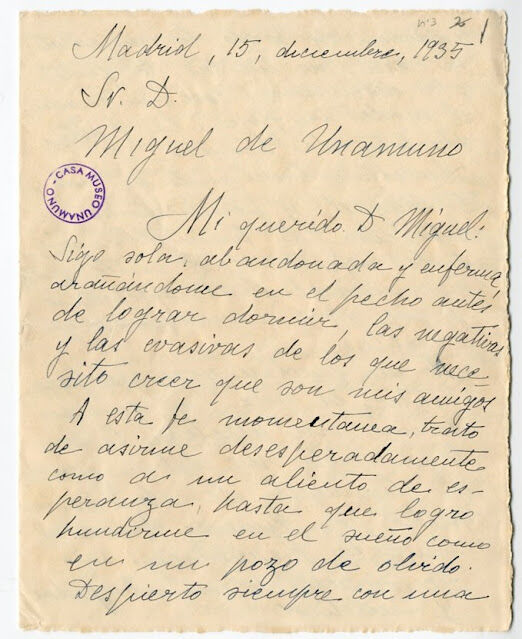 nº3 26 1
Madrid, 15, diciembre, 1935
Sr. D.
Miguel de Unamuno
CASA MUSEO UNAMUNO -
Mi querido D Miguel:
Sigo sola, abandonada y enferma,
arañándome en el pecho antes
de lograr dormir, las negativas
y las evasivas de los que nece-
sito creer que son mis amigos
A esta fe momentanea, trato
de asirme desesperadamente
como a un aliento de es-
peranza, hasta que logro
hundirme en el sueño como
en un pozo de olvido.
Despierto siempre con una